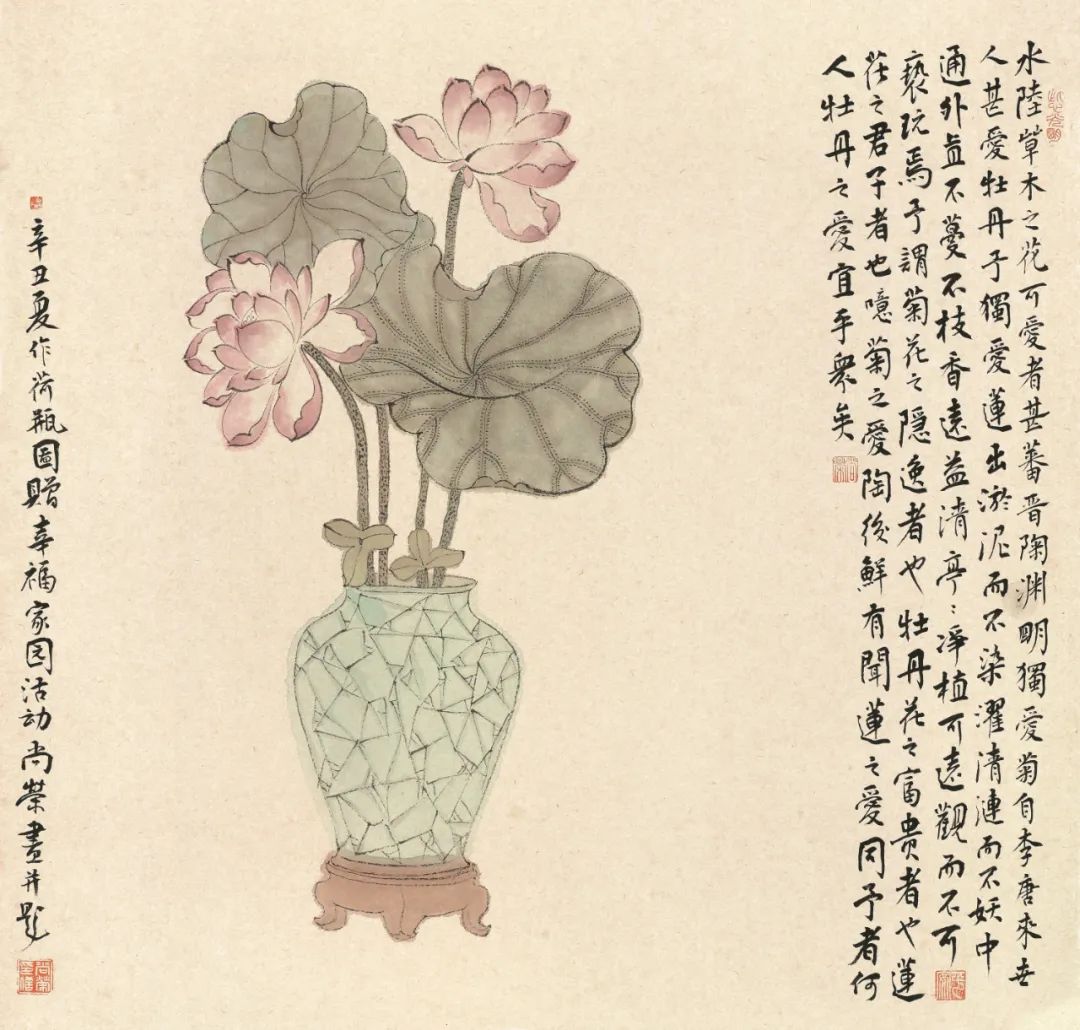 水陸草木之花可愛者甚蕃晋陶渊明獨愛菊自李唐来世
人甚愛牡丹予獨愛蓮出淤泥而不染濯清漣而不妖中
通外直不蔓不枝香遠益清亭〻淨植可遠觀而不可
褻玩焉予謂菊花之隐逸者也牡丹花之富贵者也蓮
花之君子者也噫菊之愛陶後鮮有聞蓮之愛同予者何
人牡丹之愛宜乎衆矣
辛丑夏作荷瓶圖贈幸福家园活动尚榮畫并題